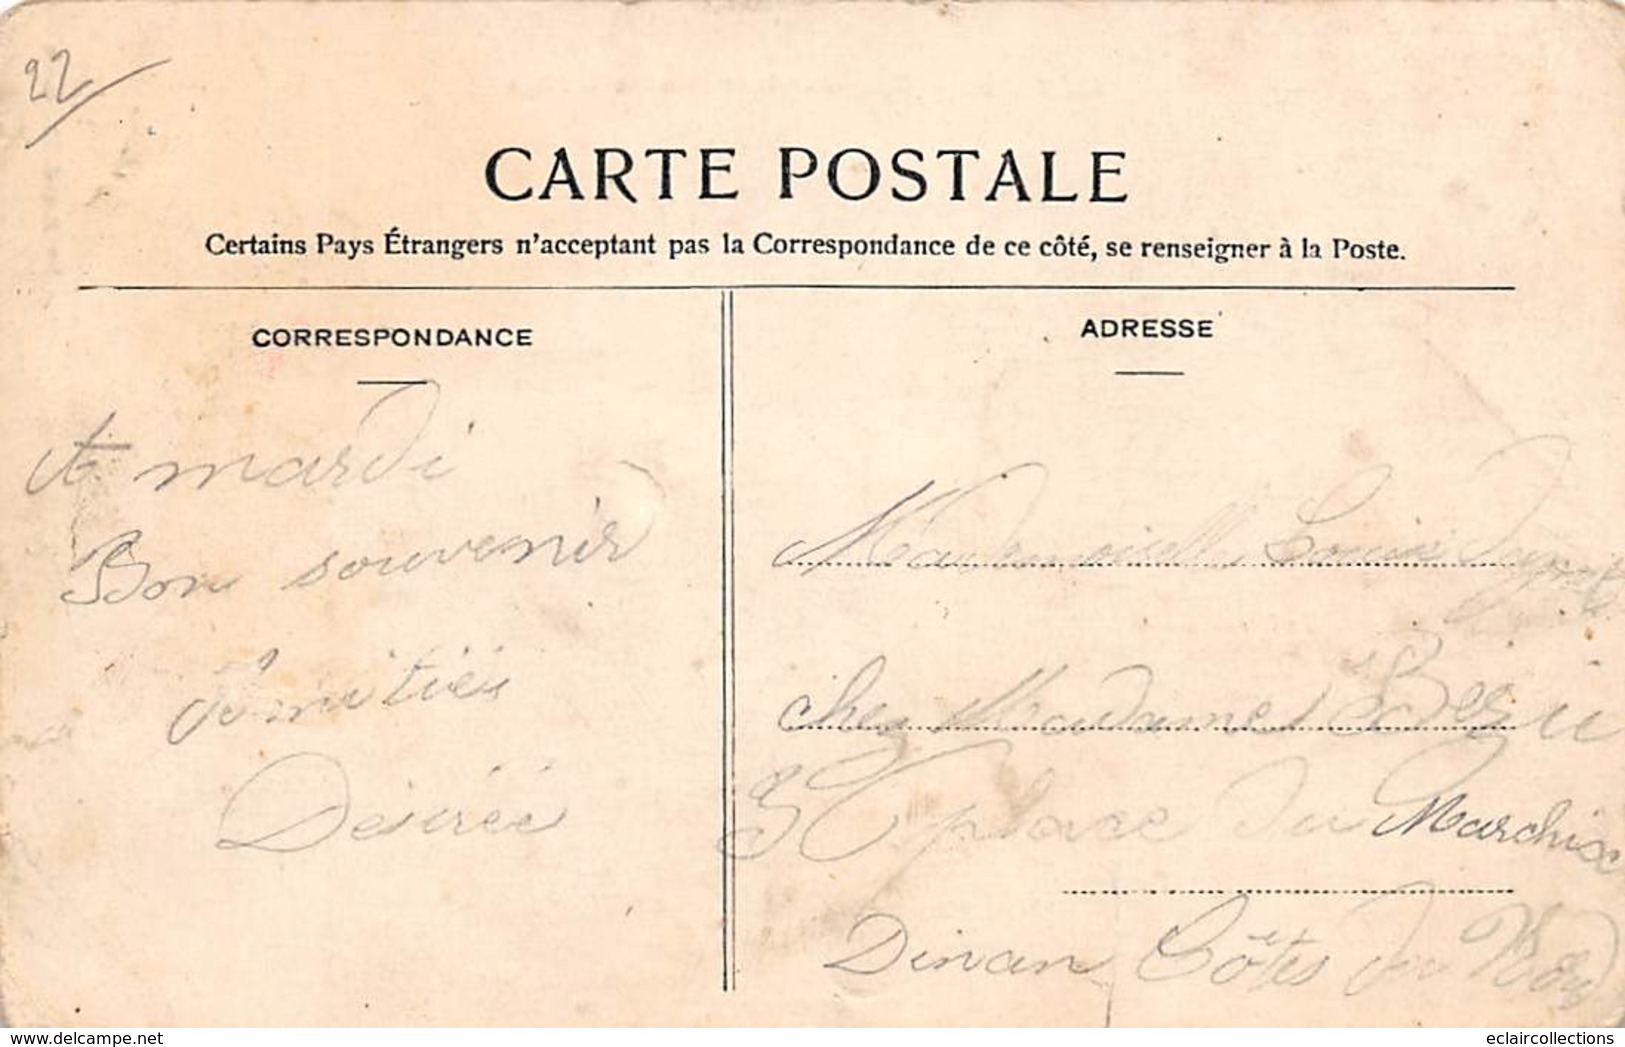 22
CARTE POSTALE
Certains Pays Étrangers n'acceptant pas la Correspondance de ce côté, se renseigner à la Poste.
CORRESPONDANCE
A mardi
Bon souvenir
Amitiés
Désirée
ADRESSE
Mademoiselle Louise
chez Madame Bezu
place du Marchix
Dinan Côtes du Nord
www.delcampe.net
eclaircollections